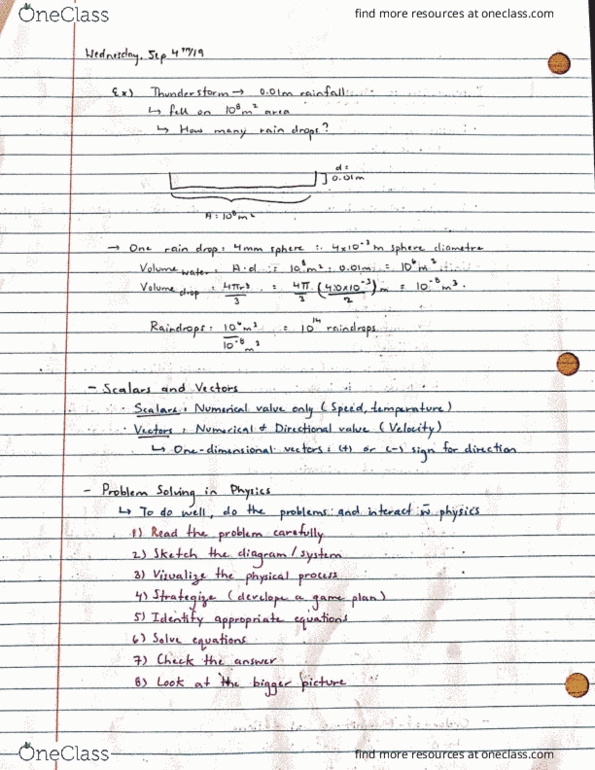 OneClass
find more resources at oneclass.com
Wednesday, Sep 4th/19
Ex) Thunderstorm → 0.01m rainfall
↳ fell on 10⁸ m² area
↳ How many rain drops?
d =
0.01m
A = 10⁸ m²
→ One rain drop = 4mm sphere ∴ 4x10⁻³ m sphere diametre
Volume water = A·d = 10⁸ m² · 0.01m = 10⁶ m³
Volume drop = 4πr³/3 = 4π/3 (4.0x10⁻³/2) m = 10⁻⁸ m³.
Raindrops = 10⁶ m³/10⁻⁸ m³ = 10¹⁴ raindrops
- Scalars and Vectors
· Scalars = Numerical value only (Speed, temperature)
· Vectors = Numerical & Directional value (Velocity)
↳ One-dimensional vectors = (+) or (-) sign for direction
- Problem Solving in Physics
↳ To do well, do the problems and interact w̄ physics
1) Read the problem carefully
2) Sketch the diagram/system
3) Visualize the physical process
4) Strategize (develope a game plan)
5) Identify appropriate equations
6) Solve equations
7) Check the answer
8) Look at the bigger picture
OneClass
find more resources at oneclass.com